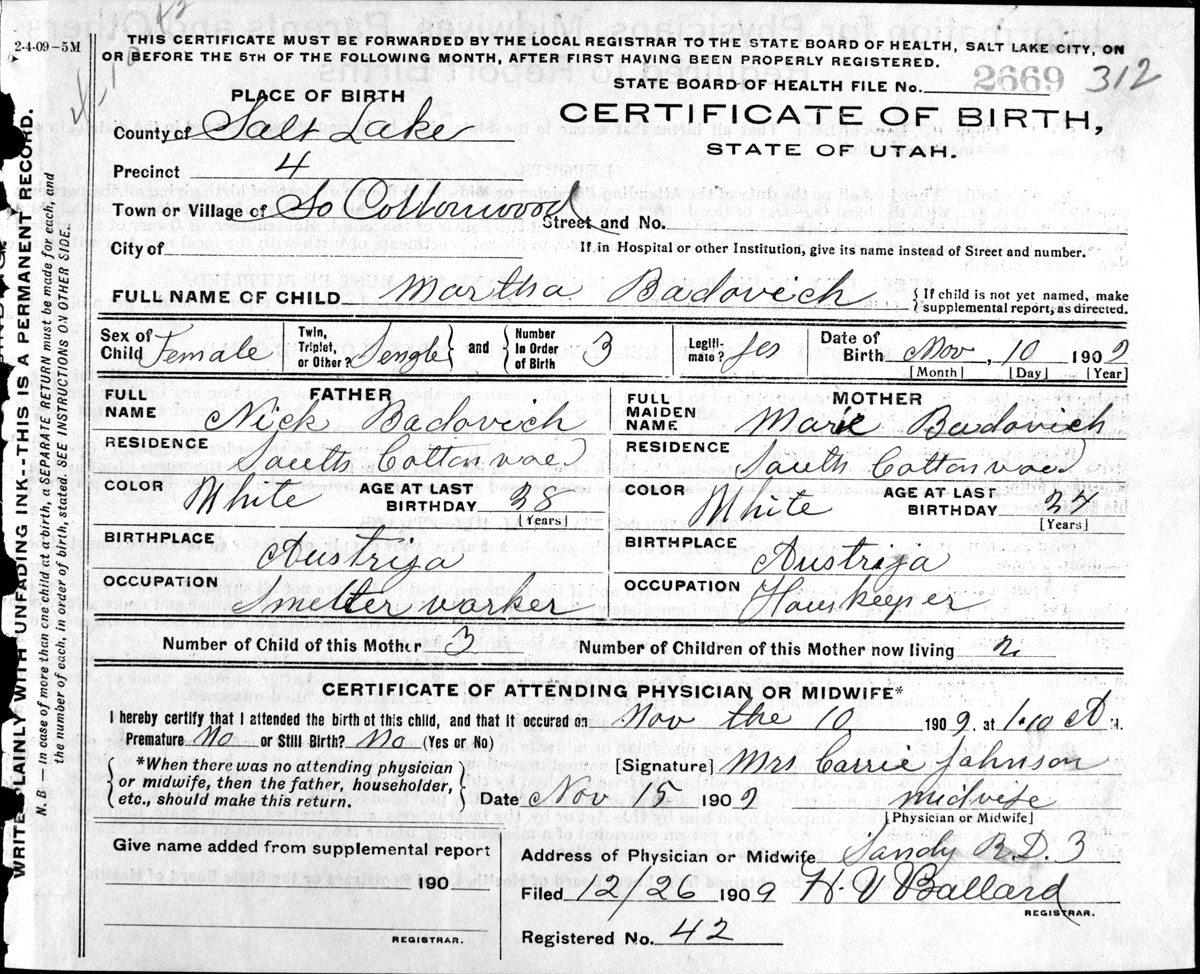 2-4-09-5M
THIS CERTIFICATE MUST BE FORWARDED BY THE LOCAL REGISTRAR TO THE STATE BOARD OF HEALTH, SALT LAKE CITY, ON
OR BEFORE THE 5TH OF THE FOLLOWING MONTH, AFTER FIRST HAVING BEEN PROPERLY REGISTERED.
STATE BOARD OF HEALTH FILE No. 2669 312
PLACE OF BIRTH
CERTIFICATE OF BIRTH,
STATE OF UTAH.
County of Salt Lake
Precinct 4
Town or Village of So Cottonwood Street and No.
City of
If in Hospital or other Institution, give its name instead of Street and number.
FULL NAME OF CHILD Martha Badovich {If child is not yet named, make
supplemental report, as directed.
Sex of Child Female Twin, Triplet, or Other? Sengle and Number In Order of Birth 3 Legiti-mate? yes Date of Birth Nov, 10 1909
[Month] [Day] [Year]
FATHER
FULL NAME Nick Badovich
RESIDENCE South Cottonwoe
COLOR White AGE AT LAST BIRTHDAY 38
[Years]
BIRTHPLACE Austrija
OCCUPATION Smelter warker
MOTHER
FULL MAIDEN NAME Marie Badovich
RESIDENCE South Cottonwoe
COLOR White AGE AT LAST BIRTHDAY 34
[Years]
BIRTHPLACE Austrija
OCCUPATION Hauskeeper
Number of Child of this Mother 3 Number of Children of this Mother now living 2
CERTIFICATE OF ATTENDING PHYSICIAN OR MIDWIFE*
I hereby certify that I attended the birth of this child, and that it occured on Nov the 10 1909, at 1.10 A M.
Premature No or Still Birth? No (Yes or No)
{*When there was no attending physician
or midwife, then the father, householder,
etc., should make this return.}
[Signature] Mrs Carrie Johnson
Date Nov 15 1909 midvife
[Physician or Midwife]
Give name added from supplemental report
190
REGISTRAR.
Address of Physician or Midwife Sandy R.D. 3
Filed 12/26 1909 H. V Ballard
REGISTRAR.
Registered No. 42
WRITE PLAINLY WITH UNFADING INK--THIS IS A PERMANENT RECORD.
N. B. — In case of more than one child at a birth, a SEPARATE RETURN must be made for each, and
the number of each, in order of birth, stated. SEE INSTRUCTIONS ON OTHER SIDE.